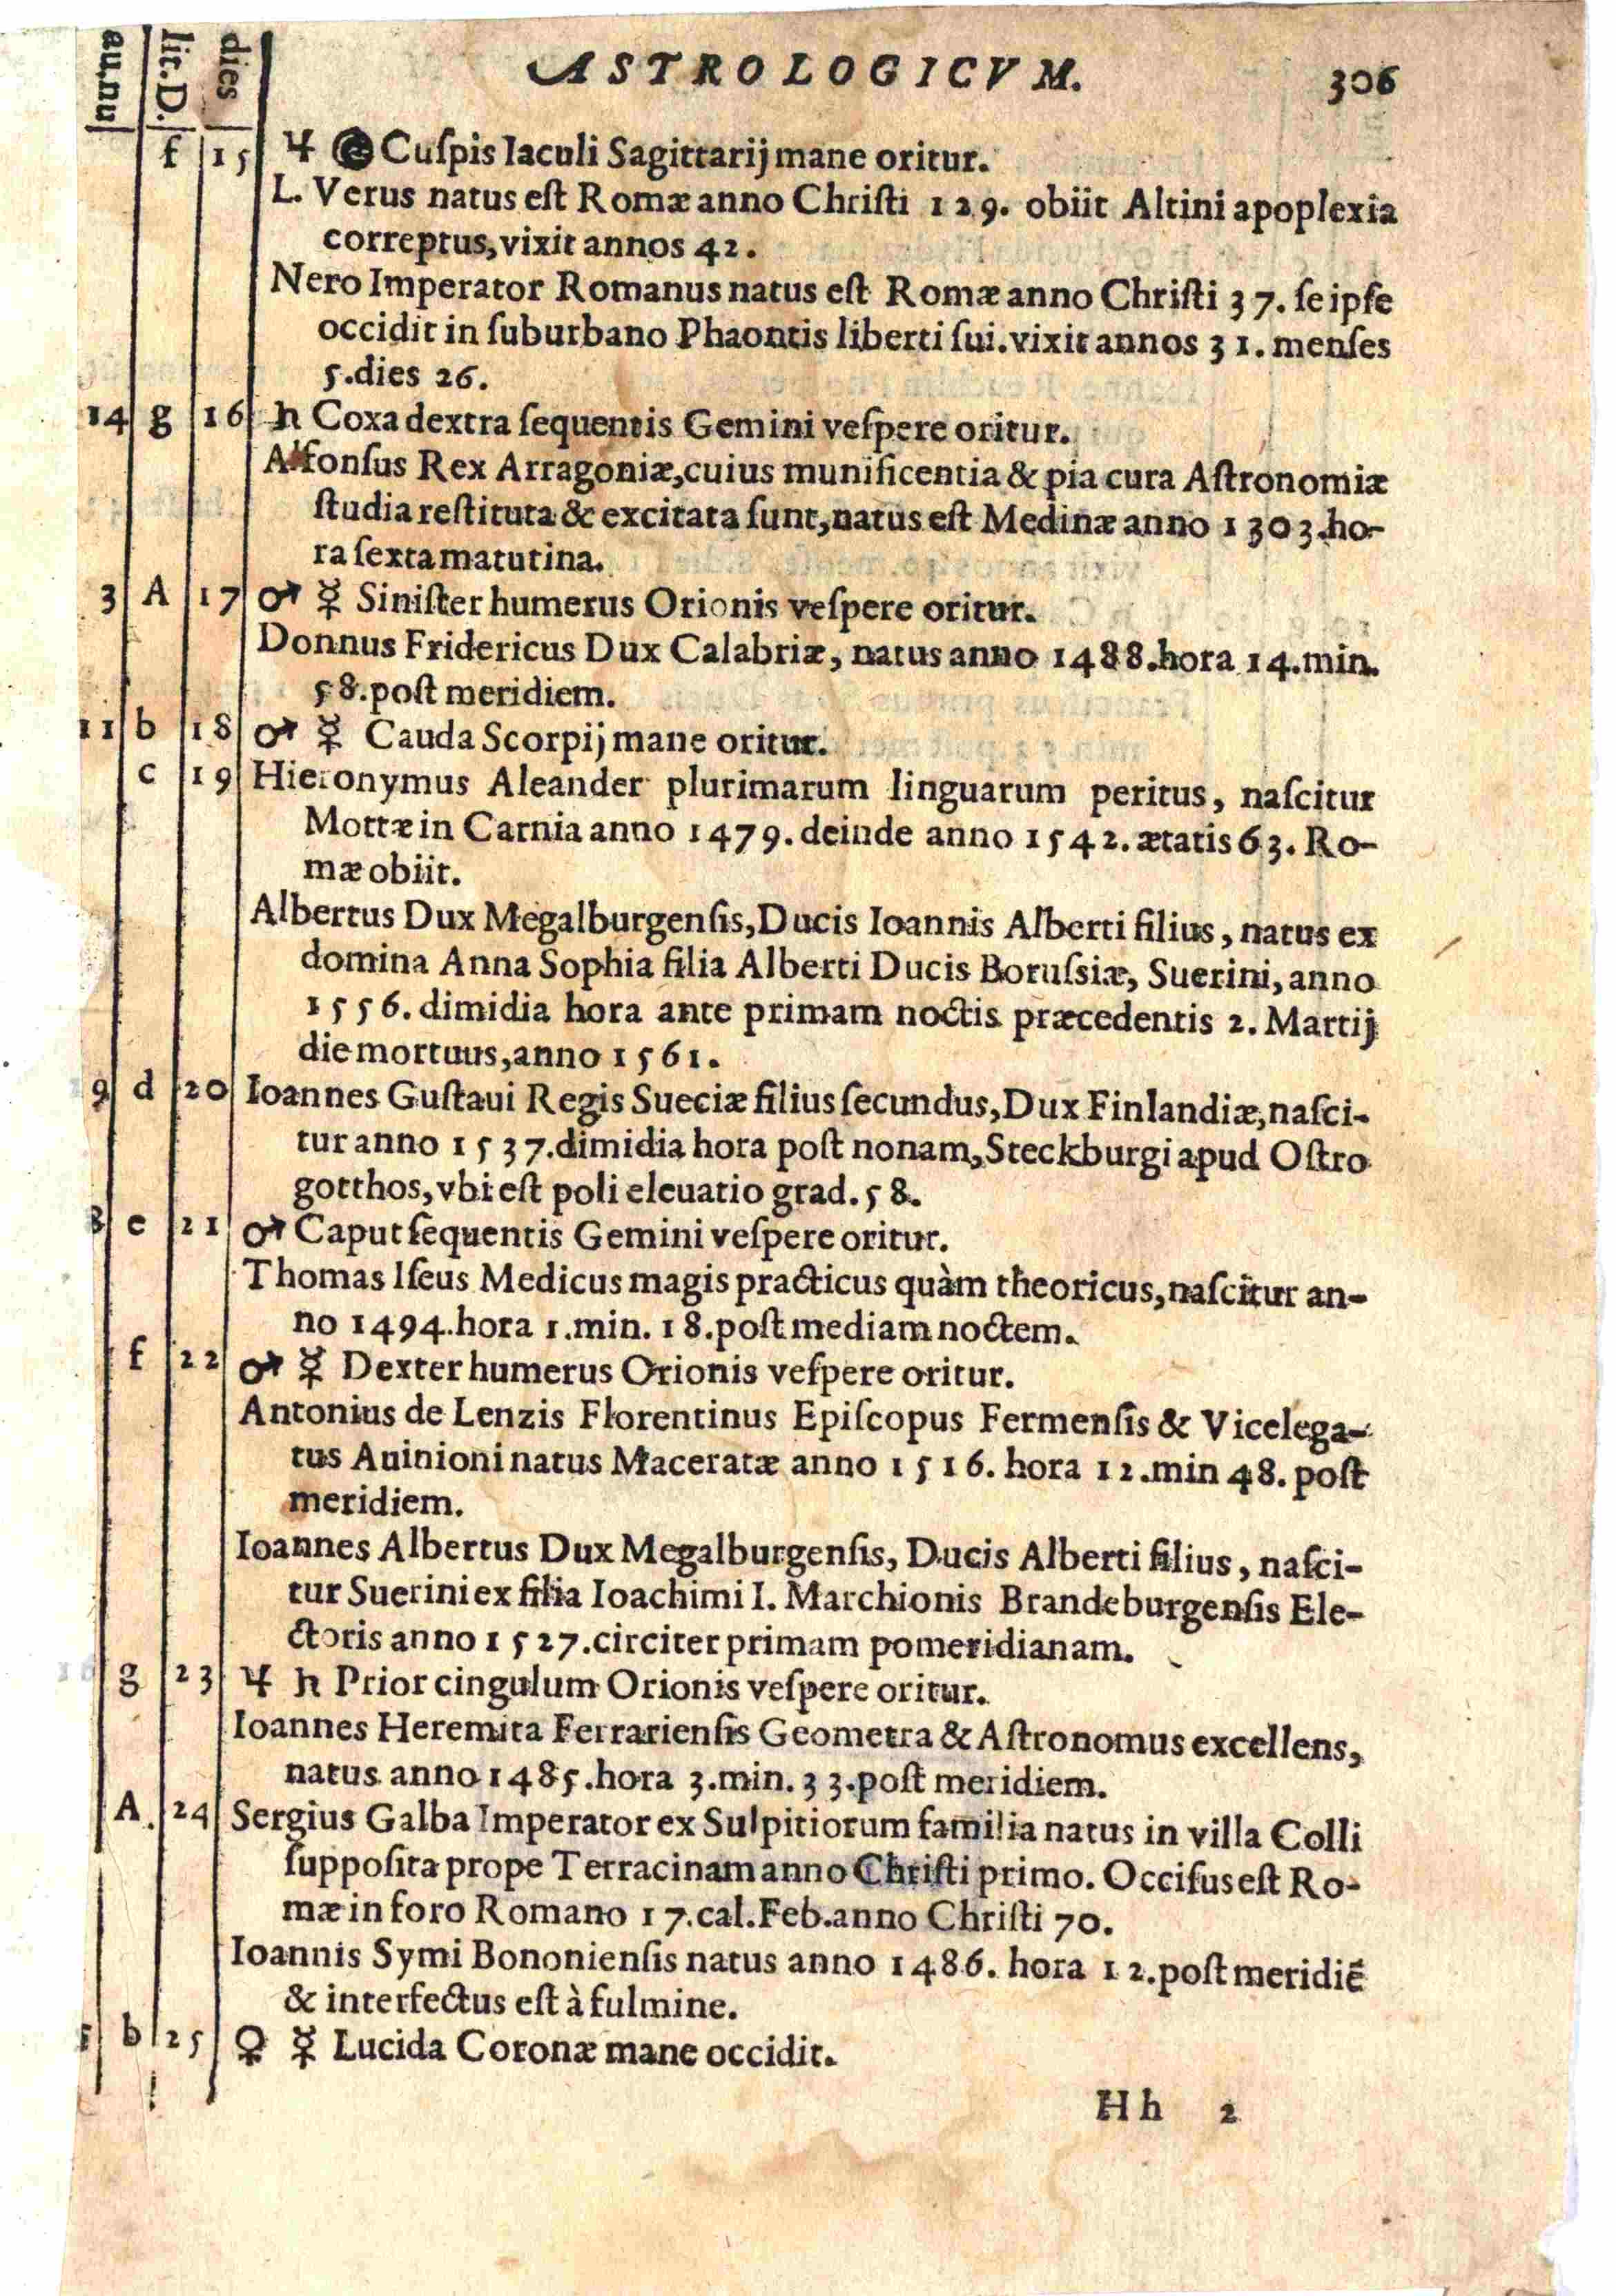 au.nu
lit.D.
dies
ASTROLOGICVM. 306
f 15 ♃ Cuſpis Iaculi Sagittarij mane oritur.
L. Verus natus eſt Romæ anno Chriſti 129. obiit Altini apoplexia
correptus, vixit annos 42.
Nero Imperator Romanus natus eſt Romæ anno Chriſti 37. ſe ipſe
occidit in ſuburbano Phaontis liberti ſui. vixit annos 31. menſes
5. dies 26.
14 g 16 ♄ Coxa dextra ſequentis Gemini veſpere oritur.
Alfonſus Rex Arragoniæ, cuius munificentia & pia cura Aſtronomiæ
ſtudia reſtituta & excitata ſunt, natus eſt Medinæ anno 1303. ho-
ra ſexta matutina.
3 A 17 ♂ ☿ Siniſter humerus Orionis veſpere oritur.
Donnus Fridericus Dux Calabriæ, natus anno 1488. hora 14. min.
58. poſt meridiem.
11 b 18 ♂ ☿ Cauda Scorpij mane oritur.
c 19 Hieronymus Aleander plurimarum linguarum peritus, naſcitur
Mottæ in Carnia anno 1479. deinde anno 1542. ætatis 63. Ro-
mæ obiit.
Albertus Dux Megalburgenſis, Ducis Ioannis Alberti filius, natus ex
domina Anna Sophia filia Alberti Ducis Boruſsiæ, Suerini, anno
1556. dimidia hora ante primam noctis præcedentis 2. Martij
die mortuus, anno 1561.
9 d 20 Ioannes Guſtaui Regis Sueciæ filius ſecundus, Dux Finlandiæ, naſci-
tur anno 1537. dimidia hora poſt nonam, Steckburgi apud Oſtro
gotthos, vbi eſt poli eleuatio grad. 58.
8 e 21 ♂ Caput ſequentis Gemini veſpere oritur.
Thomas Iſeus Medicus magis practicus quàm theoricus, naſcitur an-
no 1494. hora 1. min. 18. poſt mediam noctem.
f 22 ♂ ☿ Dexter humerus Orionis veſpere oritur.
Antonius de Lenzis Florentinus Epiſcopus Fermenſis & Vicelega-
tus Auinioni natus Maceratæ anno 1516. hora 12. min 48. poſt
meridiem.
Ioannes Albertus Dux Megalburgenſis, Ducis Alberti filius, naſci-
tur Suerini ex filia Ioachimi I. Marchionis Brandeburgenſis Ele-
ctoris anno 1527. circiter primam pomeridianam.
g 23 ♃ ♄ Prior cingulum Orionis veſpere oritur.
Ioannes Heremita Ferrarienſis Geometra & Aſtronomus excellens,
natus anno 1485. hora 3. min. 33. poſt meridiem.
A. 24 Sergius Galba Imperator ex Sulpitiorum familia natus in villa Colli
ſuppoſita prope Terracinam anno Chriſti primo. Occiſus eſt Ro-
mæ in foro Romano 17. cal. Feb. anno Chriſti 70.
Ioannis Symi Bononienſis natus anno 1486. hora 12. poſt meridiē
& interfectus eſt à fulmine.
5 b 25 ♀ ☿ Lucida Coronæ mane occidit.
Hh 2